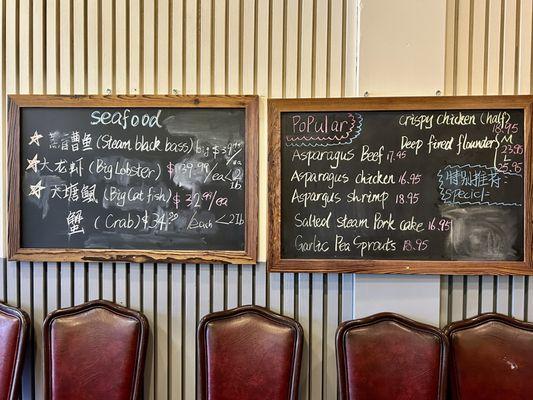 seafood
鱼 (Steam black bass) big $
大龙虾 (Big Lobster) $139.99 /ea <2 lb
大塘鲺 (Big Cat fish) $32.99/ea
蟹 (Crab) $34 each <2lb
PoPular
Asparagus Beef 17.95
Asparagus chicken 16.95
Aspargus shrimp 18.95
Salted steam Pork cake 16.95
Garlic Pea Sprouts 18.95
crispy chicken (half) 18.95
Deep fired flounder M 23.95
L 25.95
特别推荐
special